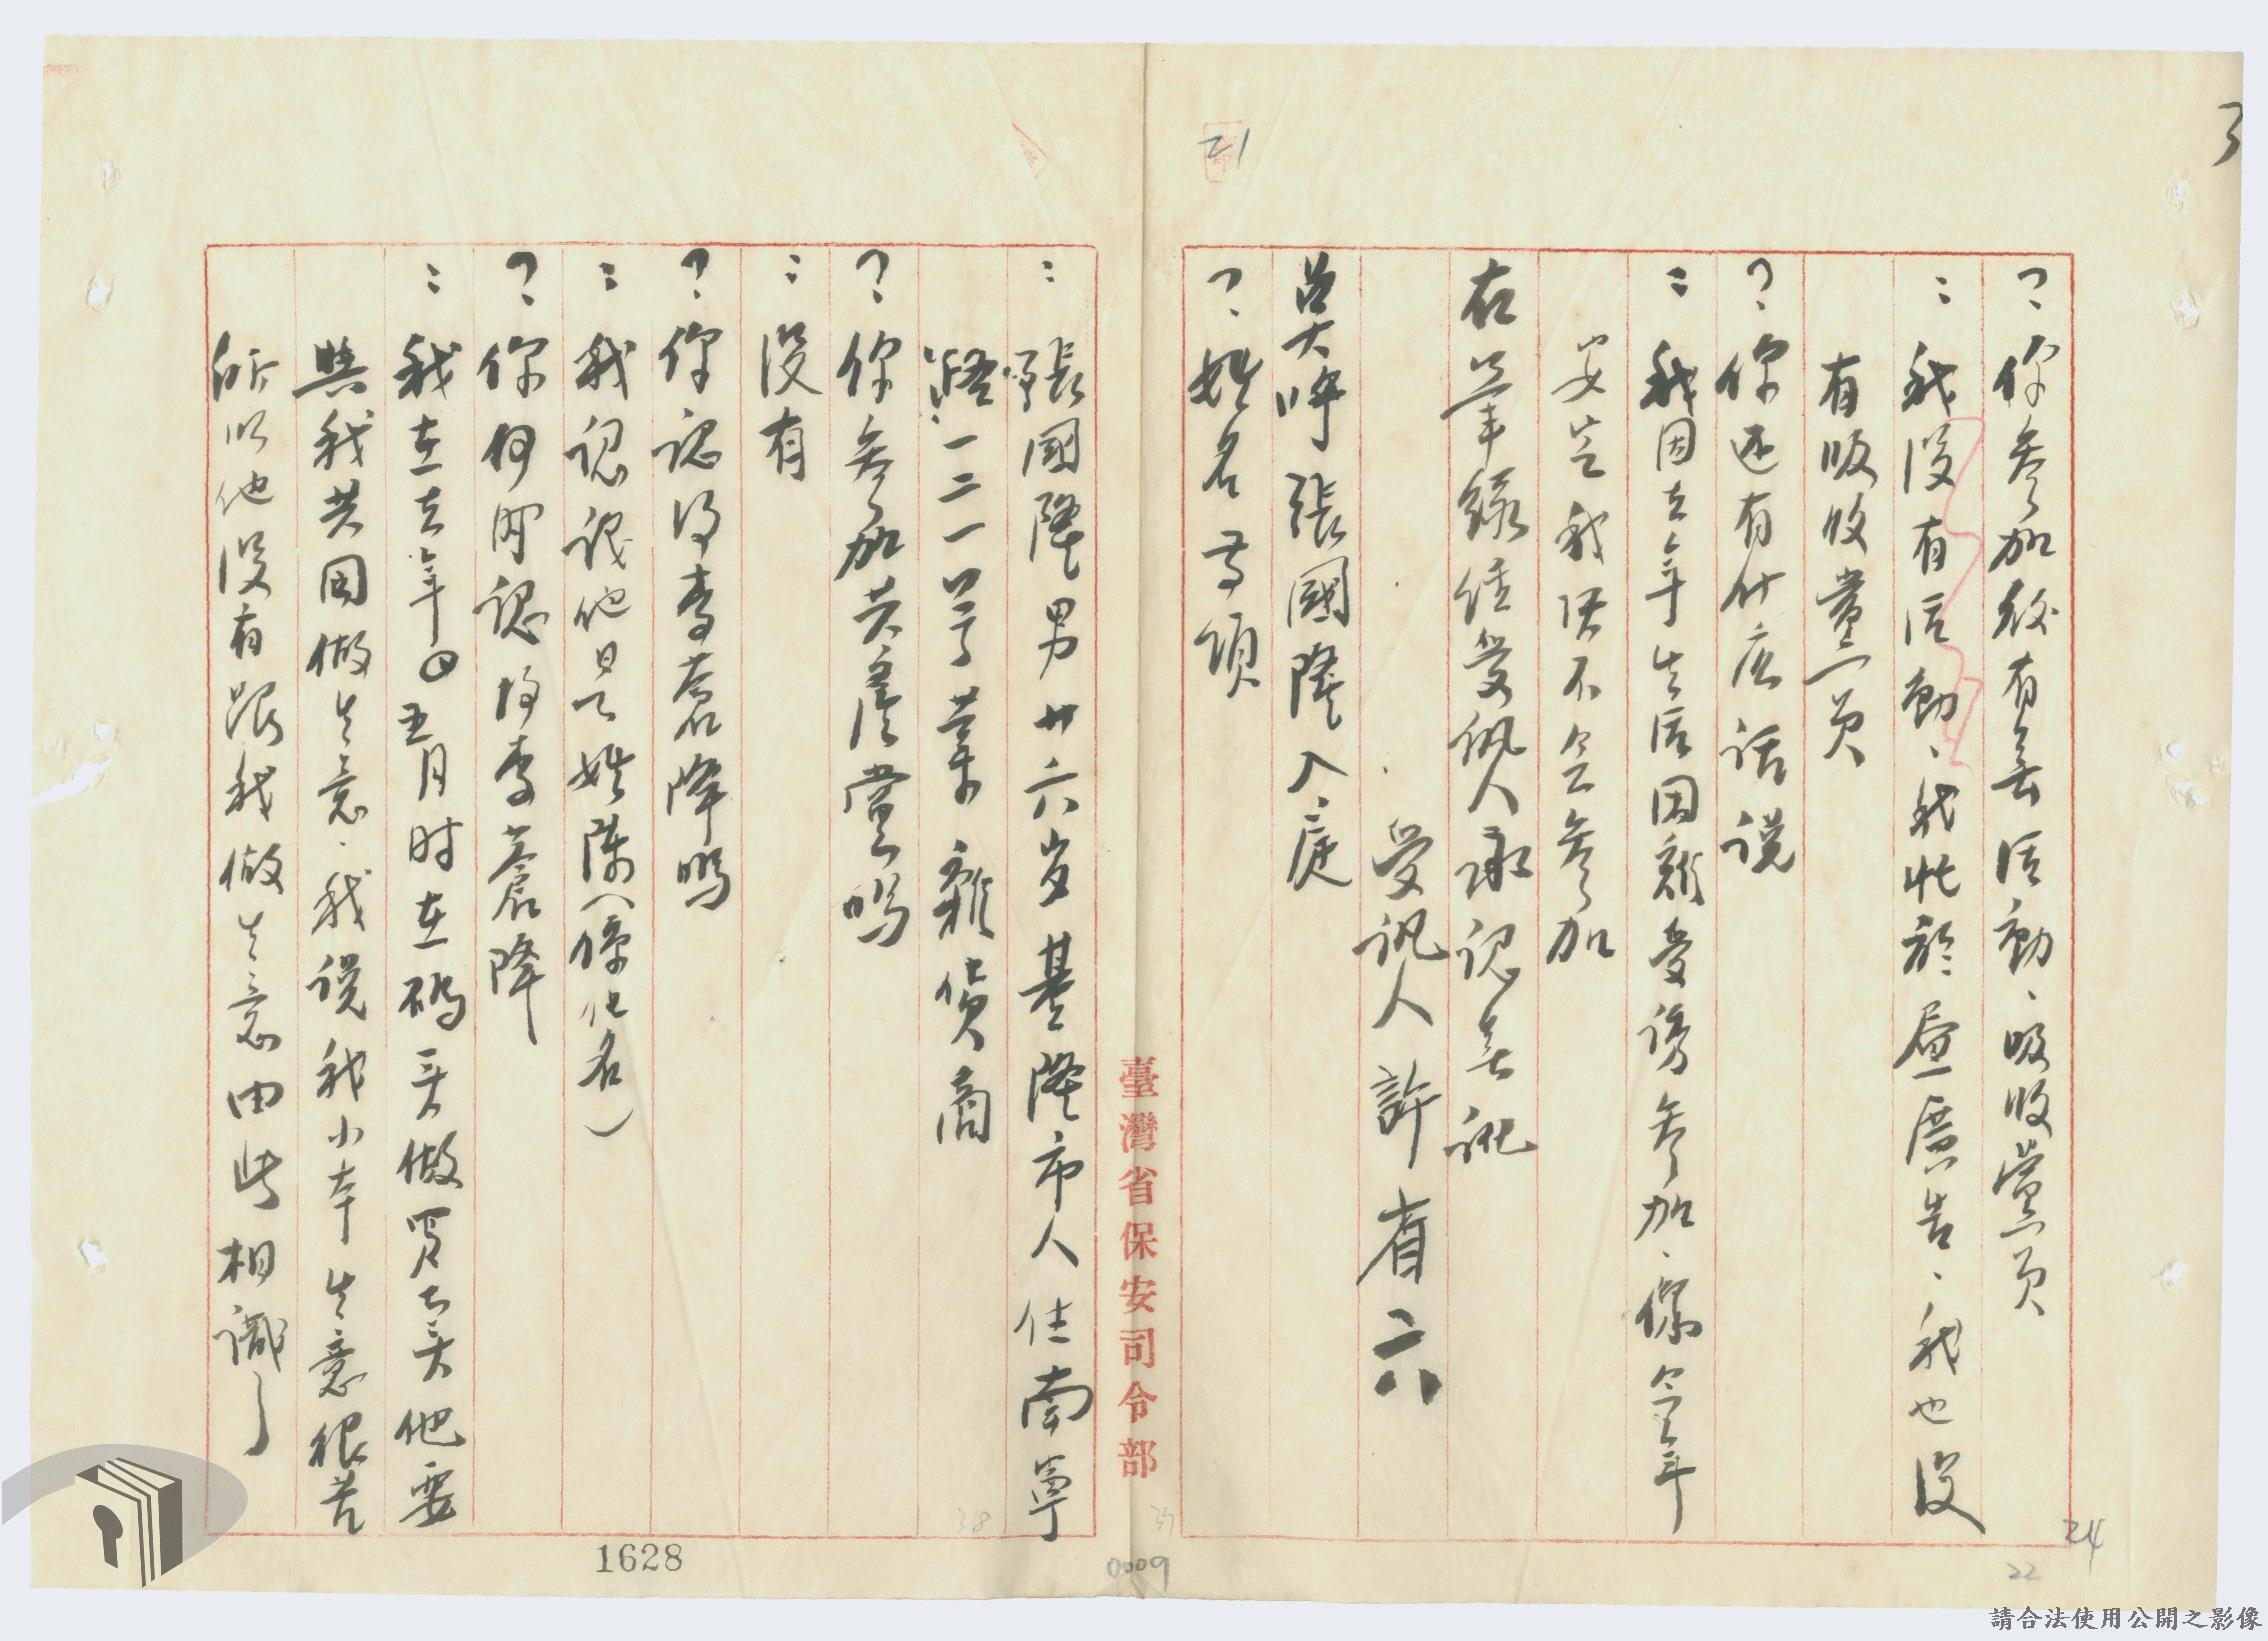 ？你參加后有無活動、吸收黨員
：我沒有活動、我忙於屋廣告、我也沒
有吸收黨員
？你还有什広話説
：我因去年生活困難受誘參加、係今年
安定我決不会參加
右筆錄経受訊人承認無訛
受訊人 許省六
点呼張國隆入庭
？姓名等項
：張國隆男廿六岁基隆市人住南寧
路一二一号業雜貨商
？你參加共產黨嗎
：沒有
？你認得李蒼降嗎
：我認識他是姓陳（係化名）
？你何时認得李蒼降
：我在去年五月时在碼头做買卖他要
與我共同做生意、我説我小本生意很苦
所以他沒有跟我做生意由此相識了
臺灣省保安司令部
21
24
22
37
38
0009
1628
請合法使用公開之影像